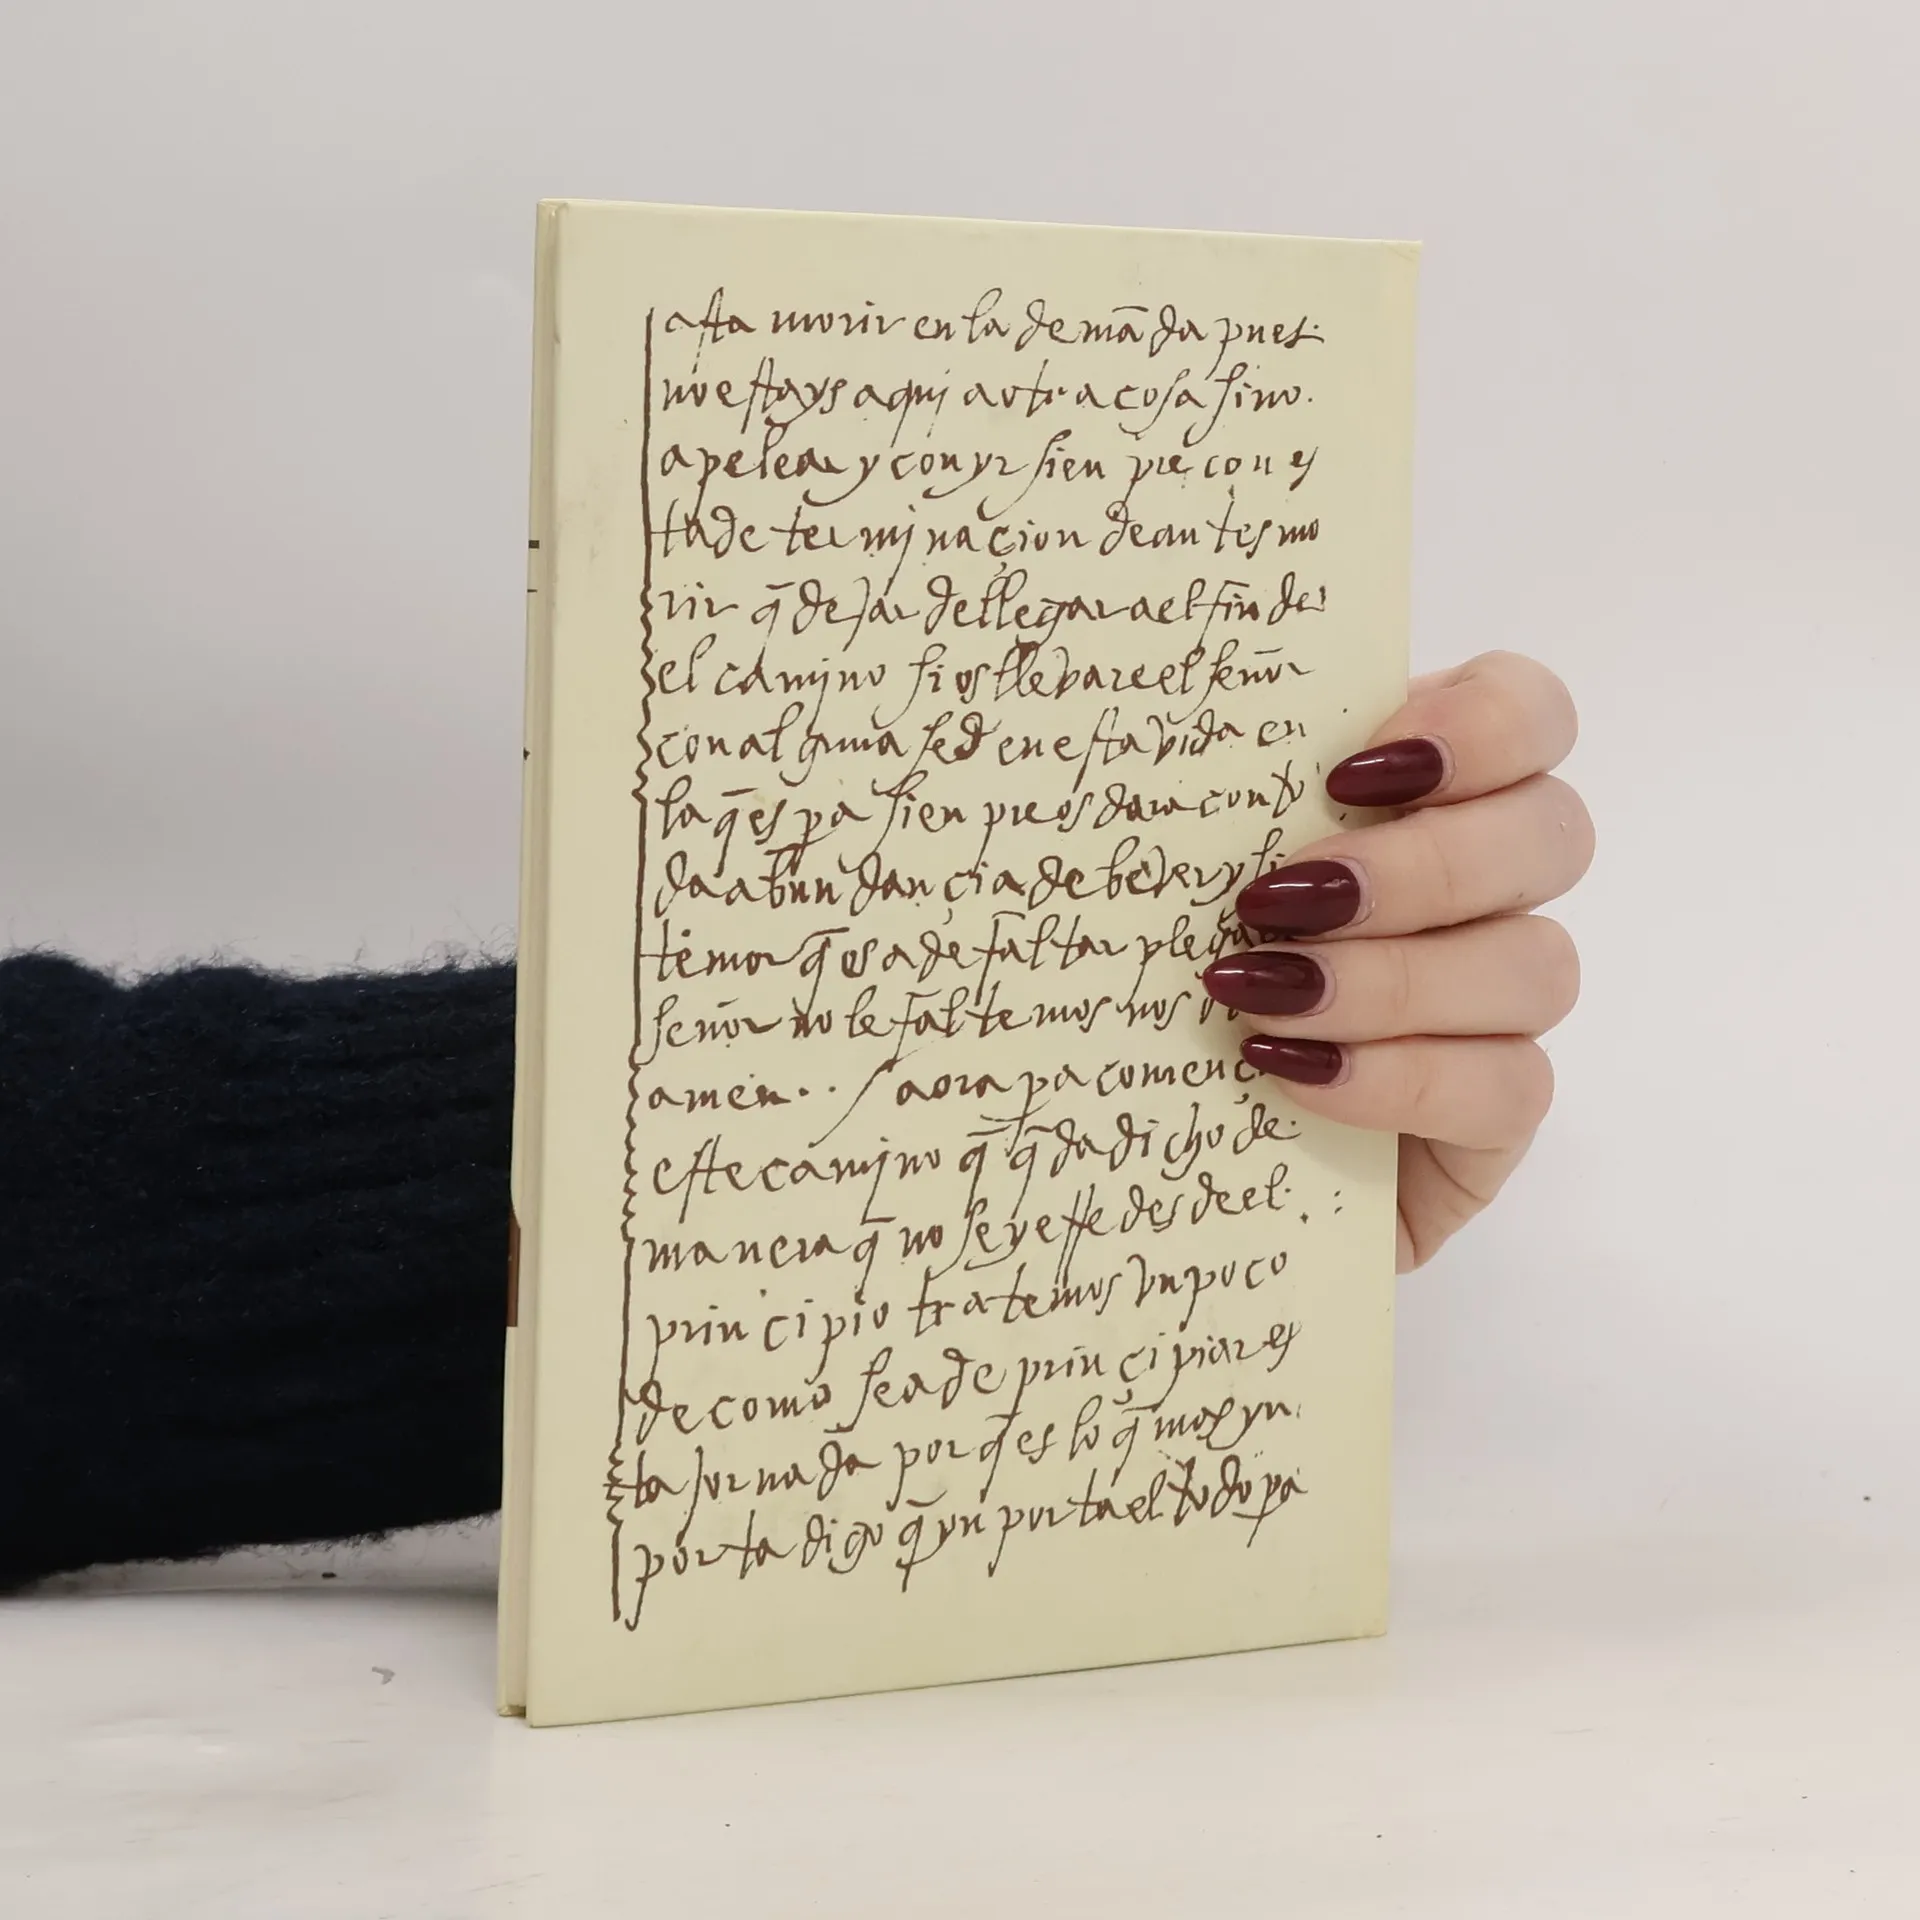 asta morir en la demāda pues.
no estays aquj a otra cosa sino.
a pelear y con yr sien pre con es
ta determjnaçion de antes mo
rir q̄ dejar de llegar a el fin de.
el camjno si os llevare el señor
con alguna sed en esta vida en
la q̄ es pa sien pre os dara con to
da abundançia de bever y si
temor q̄ os a de faltar plega
señor no le faltemos nos
amen.. / aora pa començ
este camjno q̄ q̄da dicho de.
manera q̄ no se yerre desde el.
prinçipio tratemos vn poco
de como se a de prinçipiar es
ta jornada porq̄ es lo q̄ mas yn
porta digo q̄ yn porta el todo pa